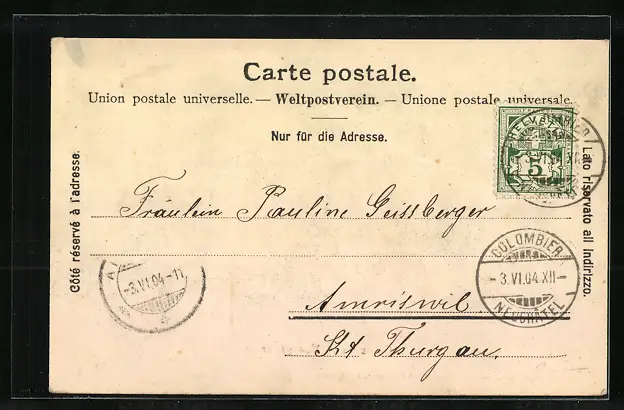 Carte postale.
Union postale universelle. — Weltpostverein. — Unione postale universale.
Nur für die Adresse.
Côté réservé à l'adresse.
Lato riservato all indirizzo.
HELVETIA
5
Fräulein Pauline Geissberger
COLOMBIER
-3.VI.04.XII-
NEUCHÂTEL
-3.VI.04-11
Amriswil
Kt. Thurgau.